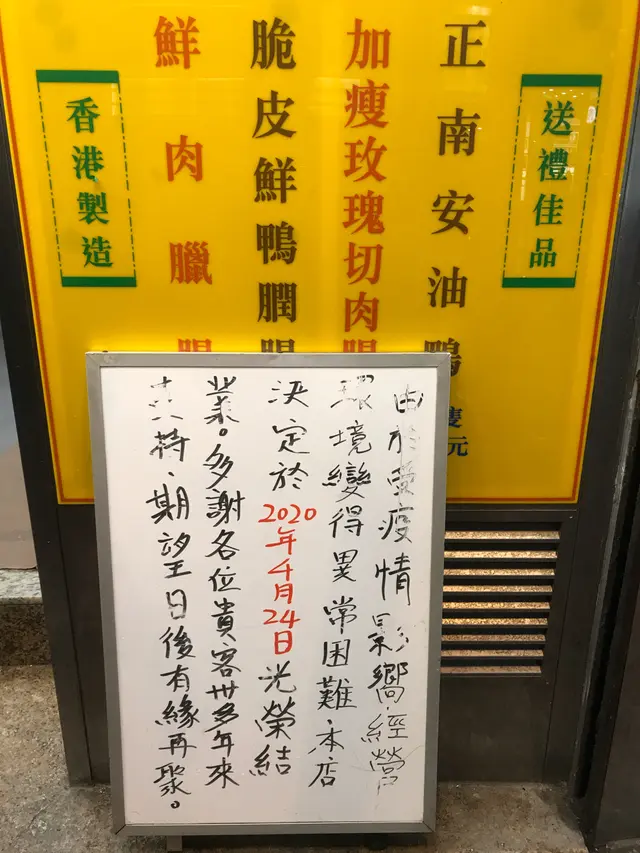 送禮佳品
正南安油鴨
隻
元
加瘦玫瑰切肉腸
脆皮鮮鴨膶腸
鮮肉臘腸
香港製造
由於受疫情影響、經營
環境變得異常困難、本店
決定於2020年4月24日光榮結
業。多謝各位貴客卅多年來
支持、期望日後有緣再聚。